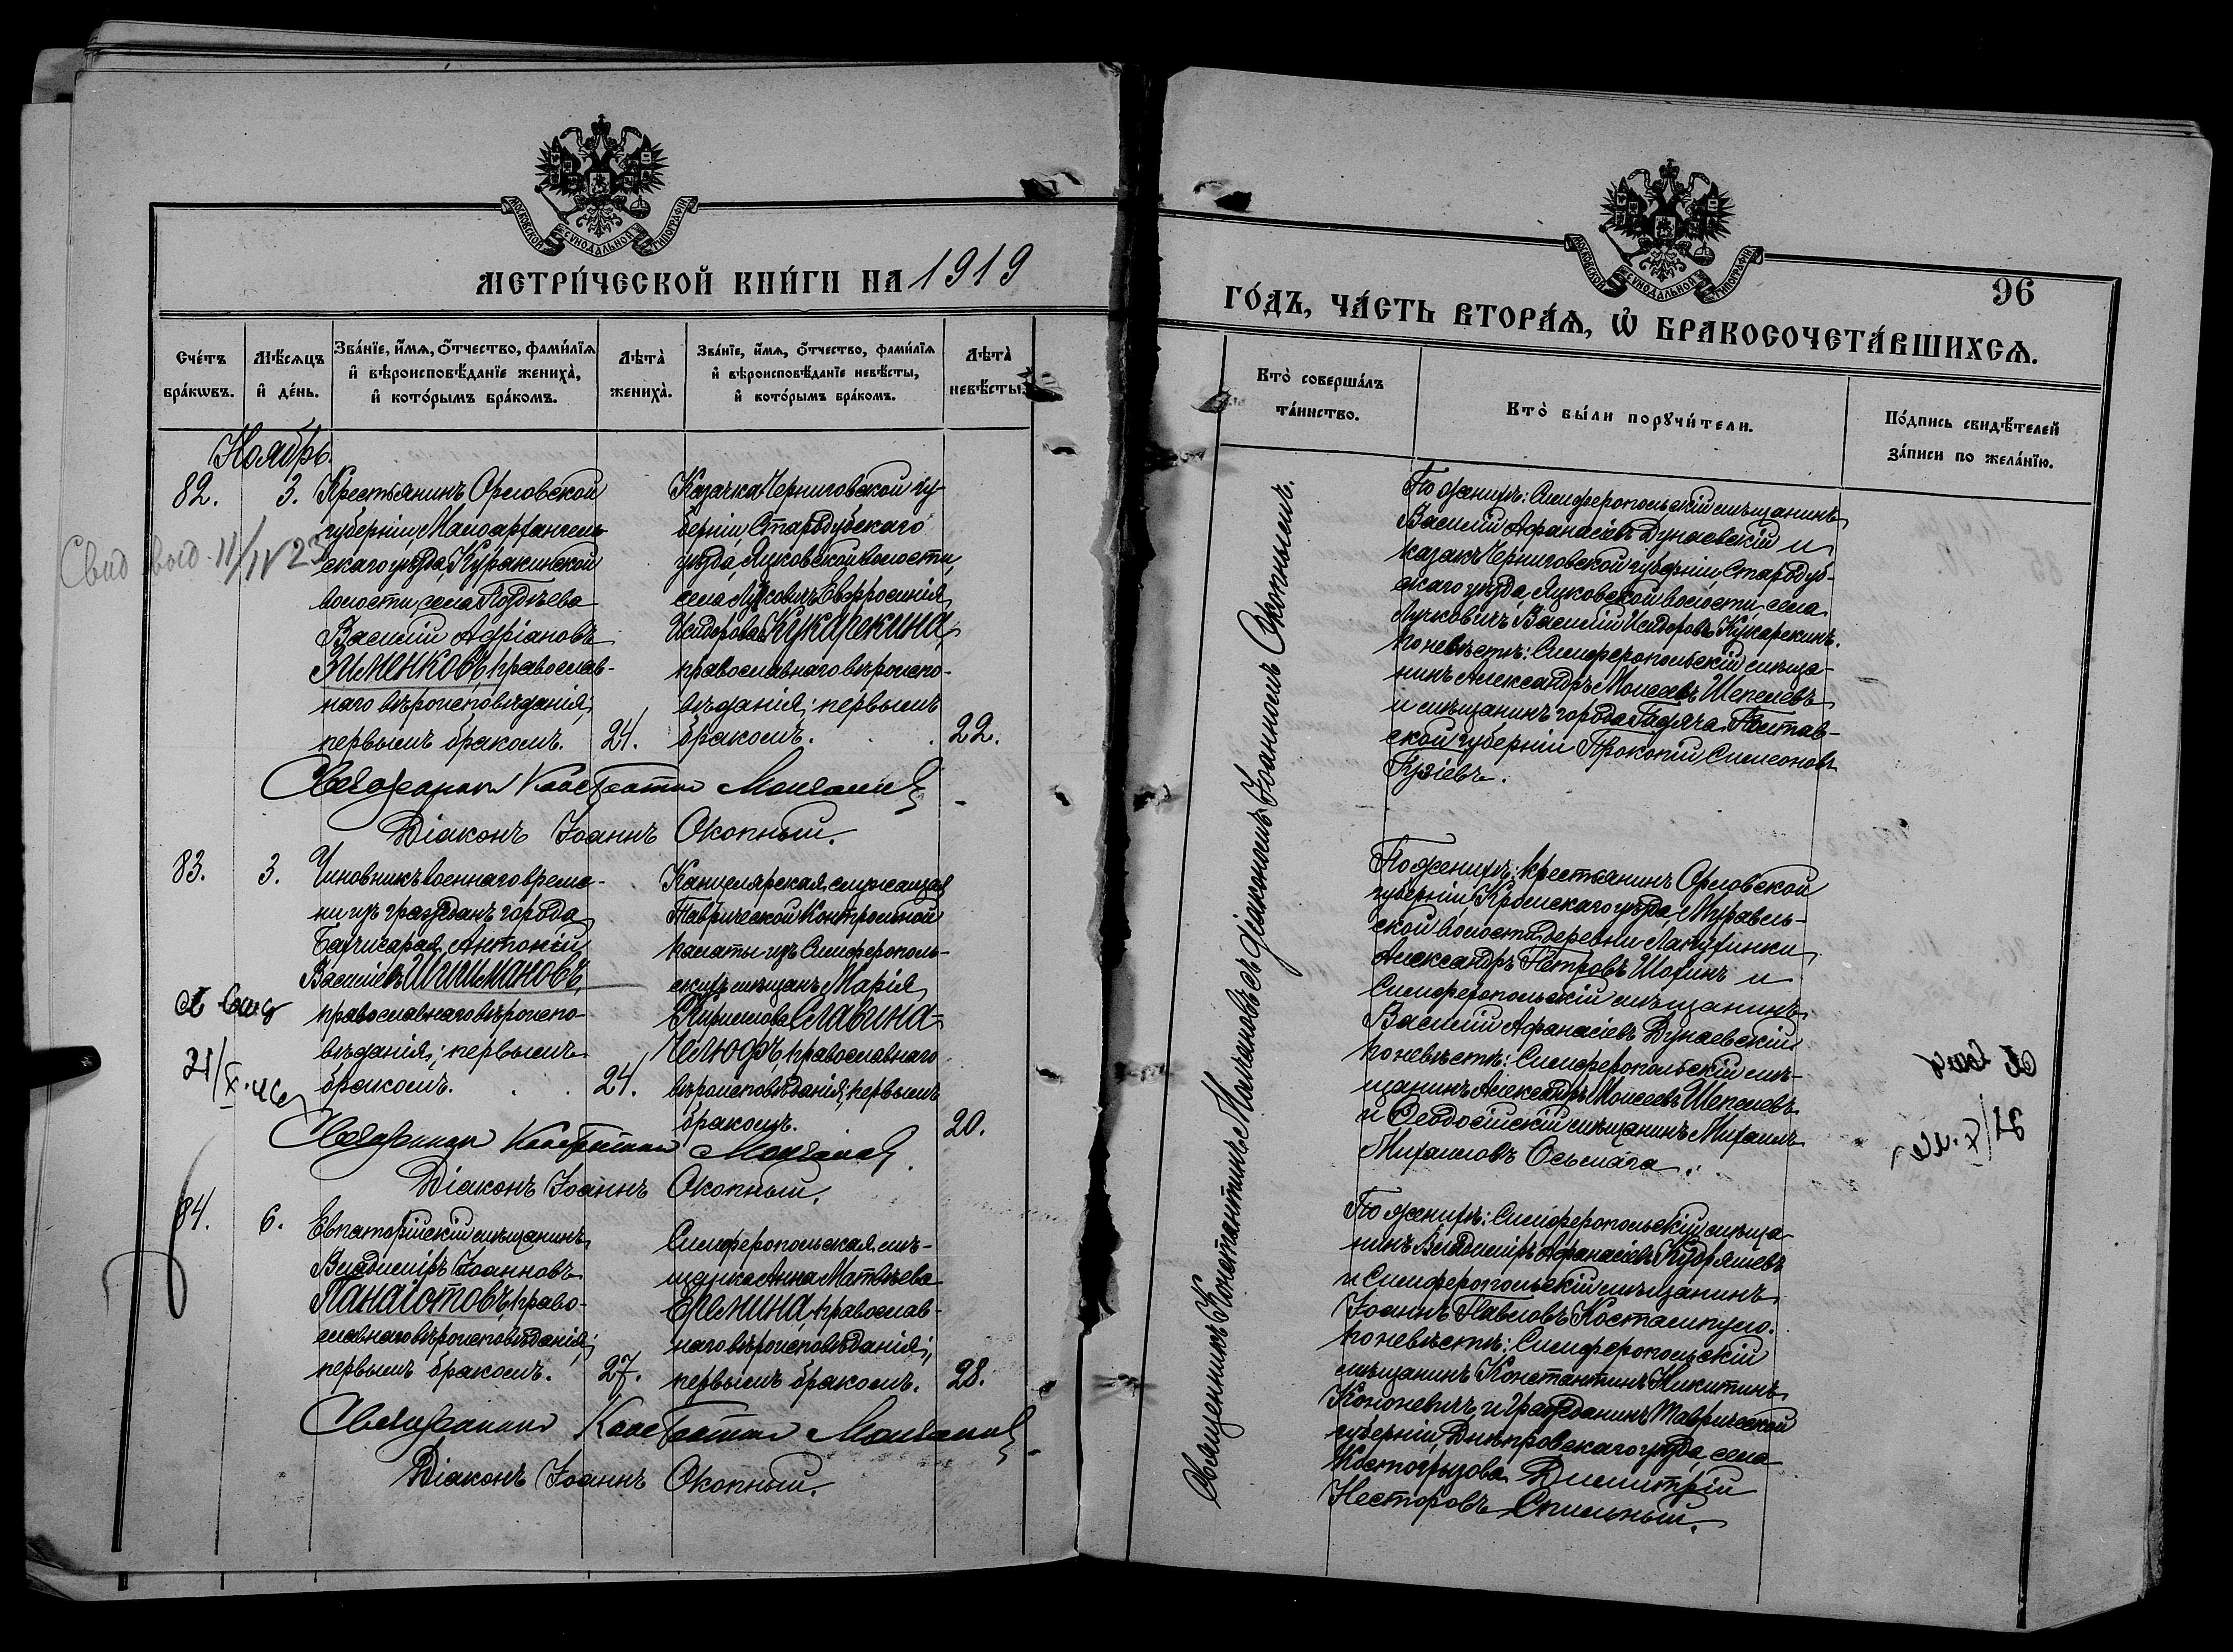 МЕТРИ́ЧЕСКОЙ КНИ́ГИ НА 1919
Счéтъ бра́кωвъ.
Мѣ́сяцъ и҆ де́нь.
Зва́нїе, и҆́мѧ, ѻ҆́тчество, фами́лїѧ и҆ вѣроисповѣ́данїе жениха̀, и҆ кото́рымъ бра́комъ.
Лѣта̀ жениха̀.
Зва́нїе, и҆́мѧ, ѻ҆́тчество, фами́лїѧ и҆ вѣроисповѣ́данїе невѣ́сты, и҆ кото́рымъ бра́комъ.
Лѣта̀ невѣ́сты.
Ноябрь.
82.
3.
Крестьянинъ Орловской
губерніи, Малоархангель-
скаго уѣзда, Куракинской
волости, села
Василій Адріановъ
Зименковъ, православ-
наго вѣроисповѣданія;
первымъ бракомъ.
24.
Казачка Черниговской гу-
берніи Стародубскаго
уѣзда, Лужовской волости,
села Евфросинія
Исидорова Кукарекина,
православнаго вѣроиспо-
вѣданія; первымъ
бракомъ.
22.
Свид выд. 11/IV 23
Священникъ Константинъ Молчановъ
Діаконъ Іоаннъ Окопный.
83.
3.
Чиновникъ военнаго време-
ни изъ гражданъ города
Бахчисарая, Антоній
Васильевъ Игшимановъ,
православнаго вѣроиспо-
вѣданія; первымъ
бракомъ.
24.
Канцелярская служащая
Таврической Контрольной
палаты изъ Симферополь-
скихъ мѣщанъ Марія
Кириллова Славина-
Челюдъ, православнаго
вѣроисповѣданія, первымъ
бракомъ.
20.
21/X.46
Священникъ Константинъ Молчановъ
Діаконъ Іоаннъ Окопный.
84.
6.
Евпаторійскій мѣщанинъ
Владиміръ Іоанновъ
Панаіотовъ, право-
славнаго вѣроисповѣданія;
первымъ бракомъ.
27.
Симферопольская мѣ-
щанка Анна Матвѣева
Ерёмина, православ-
наго вѣроисповѣданія;
первымъ бракомъ.
28.
Священникъ Константинъ Молчановъ
Діаконъ Іоаннъ Окопный.
96
ГО́ДЪ, ЧА́СТЬ ВТОРА́Ѧ, Ѽ БРАКОСОЧЕТА́ВШИХСѦ.
Кто̀ соверша́лъ та́инство.
Кто̀ бы́ли порꙋчи́тели.
По́дпись свидѣ́телей за́писи по жела́нїю.
Священникъ Константинъ Молчановъ съ діакономъ Іоанномъ Окопнымъ.
По женихѣ: Симферопольскій мѣщанинъ
Василій Афанасіевъ Дунаевскій и
казакъ Черниговской губерніи, Стародуб-
скаго уѣзда, Лужовской волости, села
Василій Исидоровъ Кукарекинъ.
По невѣстѣ: Симферопольскій мѣща-
нинъ Александръ Моисеевъ Шепелевъ
и мѣщанинъ города Гадяча Полтав-
ской губерніи Прокопій Симеоновъ
Гузіевъ.
По женихѣ: крестьянинъ Орловской
губерніи, Кромскаго уѣзда, Муравль-
ской волости, деревни Лапухинки,
Александръ Петровъ Шохинъ и
Симферопольскій мѣщанинъ
Василій Афанасіевъ Дунаевскій.
По невѣстѣ: Симферопольскій мѣ-
щанинъ Александръ Моисеевъ Шепелевъ
и Ѳеодосійскій мѣщанинъ Михаилъ
Михаиловъ Осьмага.
По женихѣ: Симферопольскій мѣща-
нинъ Владиміръ Афанасіевъ Кудряшевъ
и Симферопольскій мѣщанинъ
Іоаннъ Павловъ Костампуло.
По невѣстѣ: Симферопольскій
мѣщанинъ Константинъ Никитинъ
Кононевичъ и гражданинъ Таврической
губерніи, Днѣпровскаго уѣзда, села
Костогрызова Димитрій
Несторовъ Спильный.